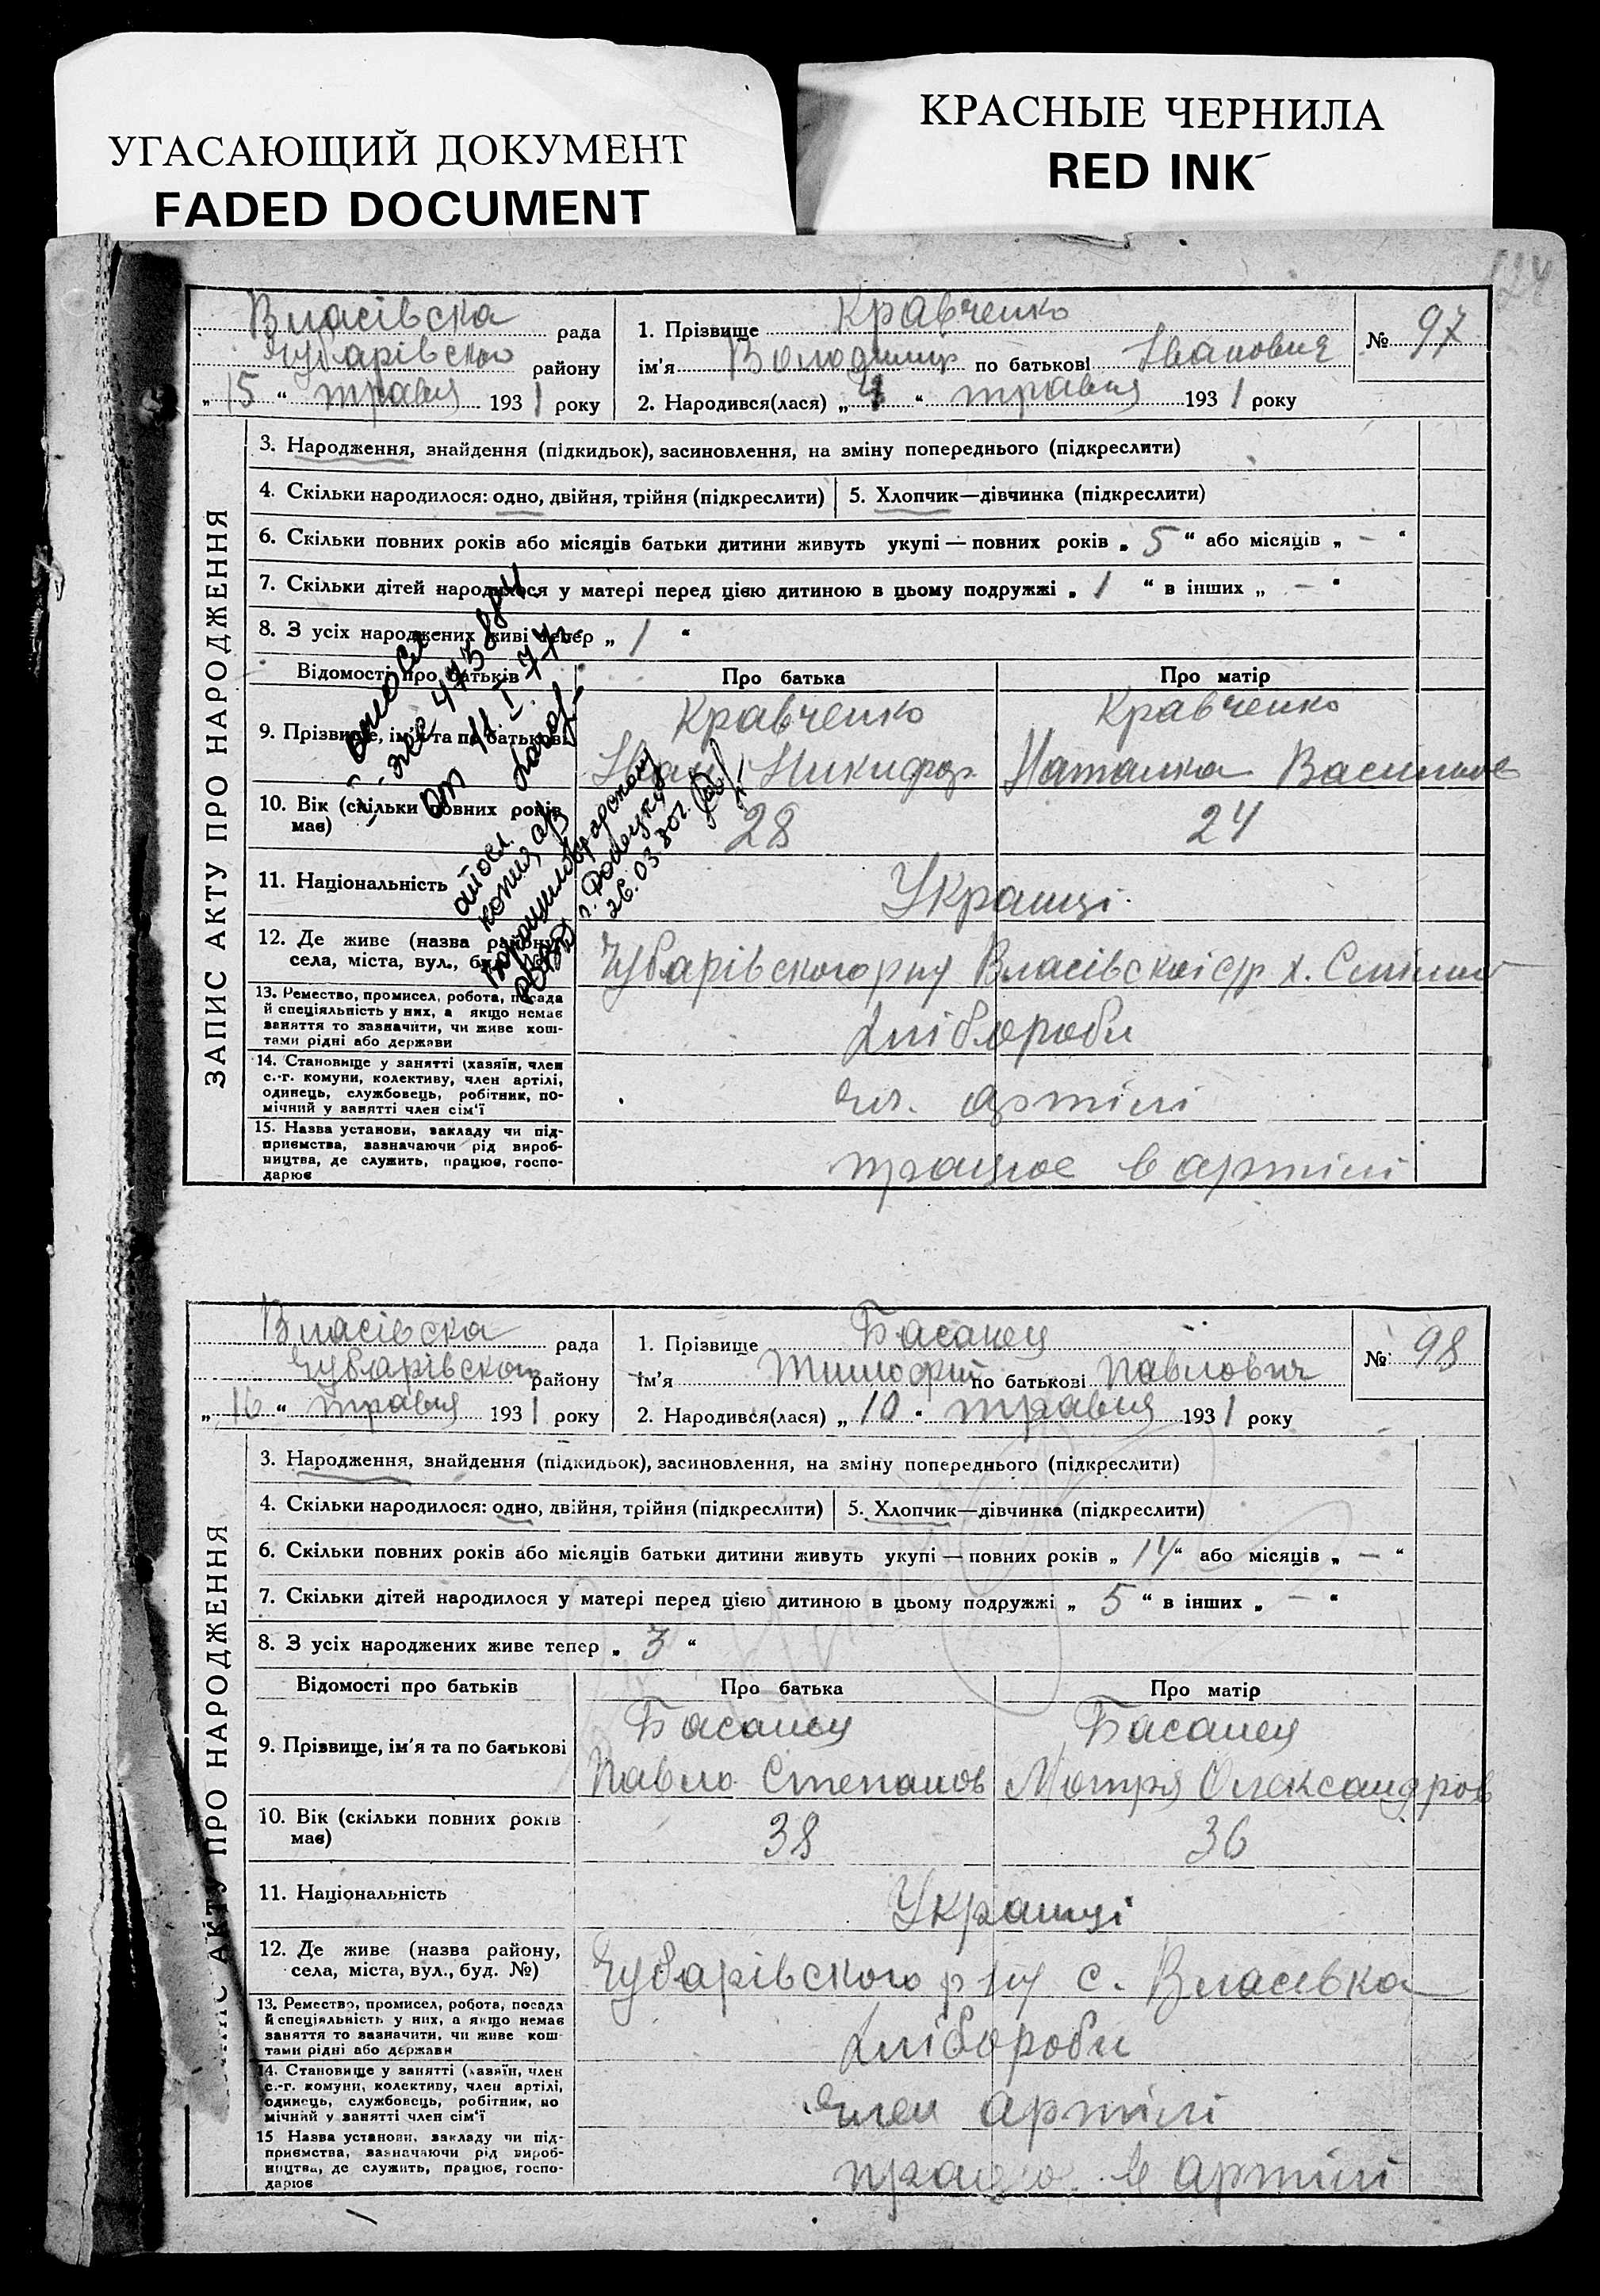 УГАСАЮЩИЙ ДОКУМЕНТ
FADED DOCUMENT
КРАСНЫЕ ЧЕРНИЛА
RED INK
124
Власівска рада
Чубарівсього району
„ 15 “ травня 1931 року
1. Прізвище Кравченко
ім'я Володимир по батькові Іванович
2. Народився(лася) „ 4 “ травня 1931 року
№ 97
ЗАПИС АКТУ ПРО НАРОДЖЕННЯ
3. Народження, знайдення (підкидьок), засиновлення, на зміну попереднього (підкреслити)
4. Скільки народилося: одно, двійня, трійня (підкреслити) 5. Хлопчик—дівчинка (підкреслити)
6. Скільки повних років або місяців батьки дитини живуть укупі — повних років „ 5 “ або місяців „ - “
7. Скільки дітей народилося у матері перед цією дитиною в цьому подружжі „ 1 “ в інших „ - “
8. З усіх народжених живі тепер „ 1 “
Відомості про батьків Про батька Про матір
9. Прізвище, ім'я та по батькові
Кравченко Кравченко
Іван Никифор. Наталка Васильов
10. Вік (скільки повних років
має)
28 24
11. Національність Українці
12. Де живе (назва району,
села, міста, вул., буд. №)
Чубарівского р-ну Власівскої с/р х.
13. Ремество, промисел, робота, посада
й спеціяльність у них, а якщо немає
заняття то зазначити, чи живе кош-
тами рідні або держави
Хлібороби
14. Становище у занятті (хазяїн, член
с.-г. комуни, колективу, член артілі,
одинець, службовець, робітник, по-
мічний у занятті член сім'ї
чл. артілі
15. Назва установи, закладу чи під-
приємства, зазначаючи рід вироб-
ництва, де служить, працює, госпо-
дарює
працює в артілі
от 11.I.77г.
копия
г. Донецка
26.03.80г.
Власівска рада
Чубарівского району
„ 16 “ травня 1931 року
1. Прізвище Басанец
ім'я Тимофій по батькові Павлович
2. Народився(лася) „ 10 “ травня 1931 року
№ 98
ЗАПИС АКТУ ПРО НАРОДЖЕННЯ
3. Народження, знайдення (підкидьок), засиновлення, на зміну попереднього (підкреслити)
4. Скільки народилося: одно, двійня, трійня (підкреслити) 5. Хлопчик—дівчинка (підкреслити)
6. Скільки повних років або місяців батьки дитини живуть укупі — повних років „ 14 “ або місяців „ - “
7. Скільки дітей народилося у матері перед цією дитиною в цьому подружжі „ 5 “ в інших „ - “
8. З усіх народжених живе тепер „ 3 “
Відомості про батьків Про батька Про матір
9. Прізвище, ім'я та по батькові
Басанец Басанец
Павло Степанов Мотря Олександров
10. Вік (скільки повних років
має)
38 36
11. Національність Українці
12. Де живе (назва району,
села, міста, вул., буд. №)
Чубарівского р-ну с. Власівка
13. Ремество, промисел, робота, посада
й спеціяльність у них, а якщо немає
заняття то зазначити, чи живе кош-
тами рідні або держави
Хлібороби
14. Становище у занятті (хазяїн, член
с.-г. комуни, колективу, член артілі,
одинець, службовець, робітник, по
мічний у занятті член сім'ї
член артілі
15 Назва установи, закладу чи під-
приємства, зазначаючи рід вироб-
ництва, де служить, працює, госпо-
дарює
в артілі